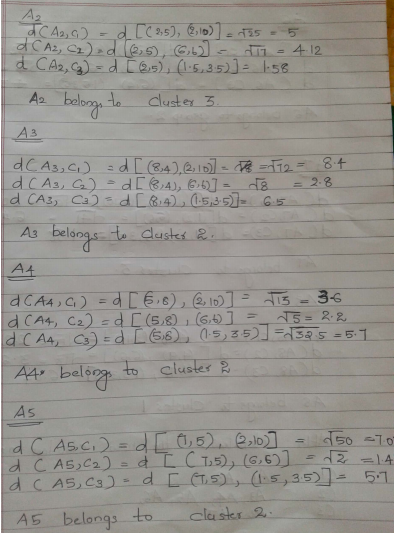 A2
d(A2,C1) = d [(2,5), (2,10)] = √25 = 5
d(A2, C2) = d [(2,5), (6,6)] = √17 = 4.12
d(A2, C3) = d [(2,5), (1.5,3.5)] = 1.58
A2 belongs to cluster 3.
A3
d(A3, C1) = d[(8,4),(2,10)] = = √72 = 8.4
d(A3, C2) = d[(8,4), (6,6)] = √8 = 2.8
d(A3, C3) = d[(8,4), (1.5,3.5)] = 6.5
A3 belongs to cluster 2.
A4
d(A4, C1) = d[(5,8), (2,10)] = √13 = 3.6
d(A4, C2) = d[(5,8), (6,6)] = √5 = 2.2
d(A4, C3) = d[(5,8), (1.5, 3.5)] = √32.5 = 5.7
A4 belongs to cluster 2
A5
d(A5,C1) = d[(7,5), (2,10)] = √50 = 7.0
d(A5,C2) = d[(7,5), (6,6)] = √2 = 1.4
d(A5,C3) = d[(7,5), (1.5, 3.5)] = 5.7
A5 belongs to cluster 2.